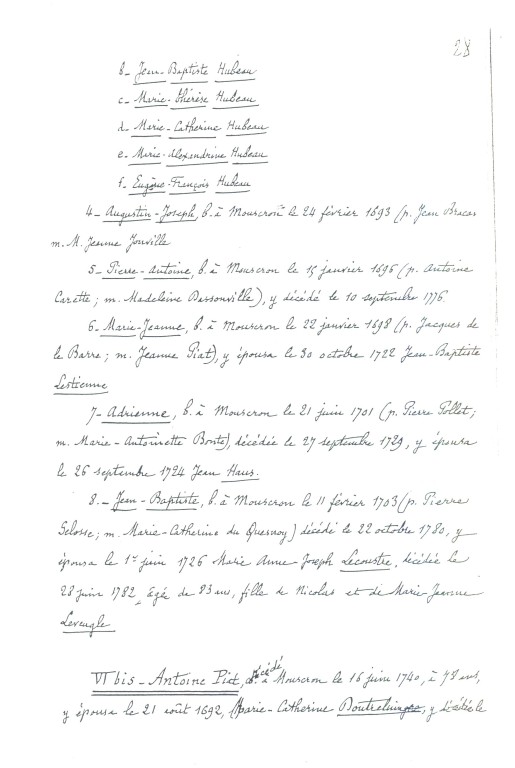 28
b- Jean-Baptiste Hubeau
c- Marie-Thérèse Hubeau
d- Marie-Catherine Hubeau
e- Marie-Alexandrine Hubeau
f- Eugène-François Hubeau
4- Augustin-Joseph, b. à Mouscron le 24 février 1693 (p. Jean Bracas
m. M. Jeanne Jouville
5- Pierre-Antoine, b. à Mouscron le 15 janvier 1696 (p. Antoine
Carette; m. Madeleine Dassonville), y décédé le 10 septembre 1776.
6- Marie-Jeanne, b. à Mouscron le 22 janvier 1698 (p. Jacques de
le Barre; m. Jeanne Piat), y épousa le 30 octobre 1722 Jean-Baptiste
Lestienne
7- Adrienne, b. à Mouscron le 21 juin 1701 (p. Pierre Pollet;
m. Marie-Antoinette Bonte), décédée le 27 septembre 1729, y épousa
le 26 septembre 1724 Jean Haus.
8.- Jean-Baptiste, b. à Mouscron le 11 février 1703 (p. Pierre
Selosse; m. Marie-Catherine du Quesnoy) décédé le 22 octobre 1780, y
épousa le 1er juin 1726 Marie Anne Joseph Lecoustre, décédée le
28 juin 1782, âgée de 83 ans, fille de Nicolas et de Marie-Jeanne
Leveugle
VI bis - Antoine Piat, décédé à Mouscron le 16 juin 1740, à 78 ans,
y épousa le 21 août 1692, Marie-Catherine y décédée le